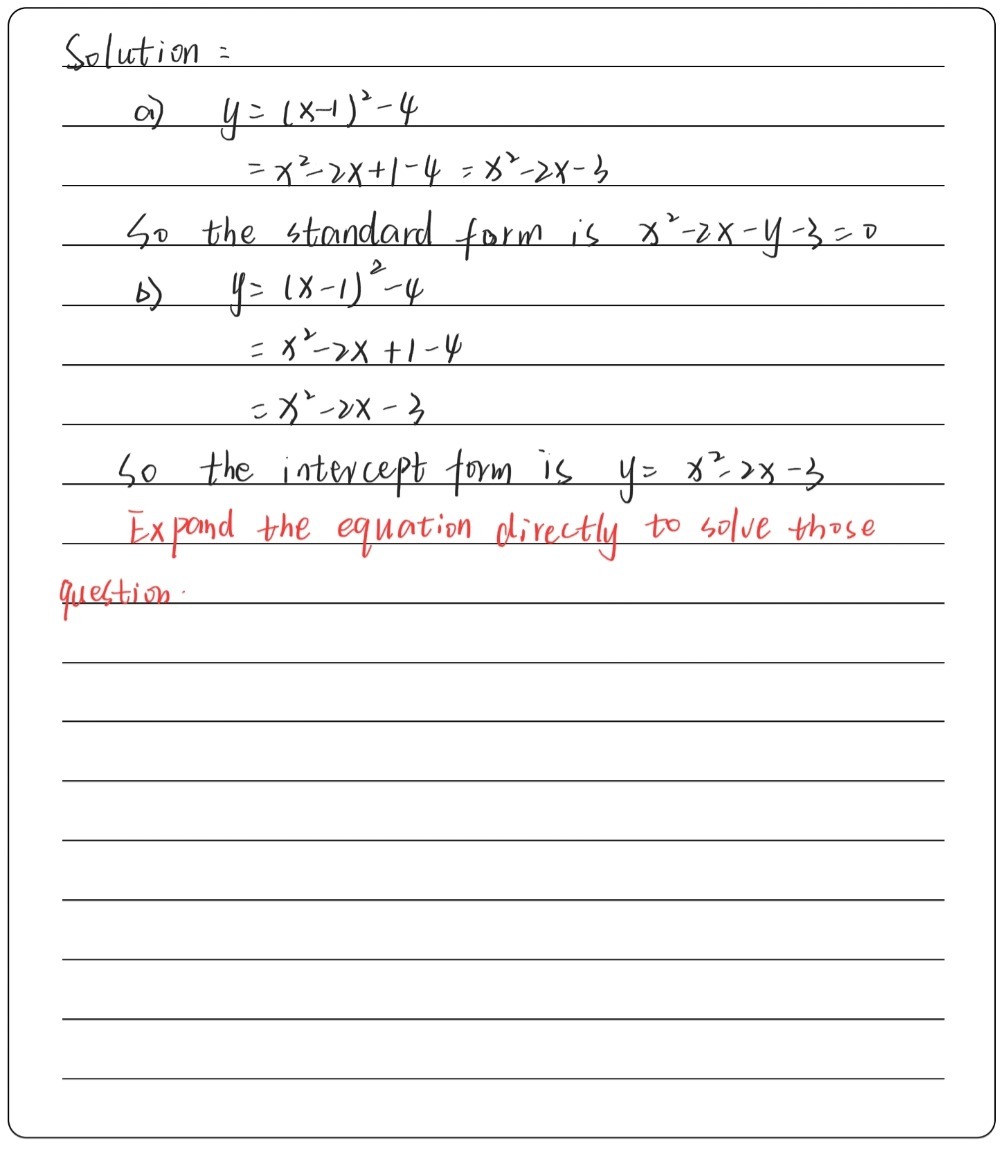 Solution =
a) y = (x-1)² - 4
= x² - 2x + 1 - 4 = x² - 2x - 3
So the standard form is x² - 2x - y - 3 = 0
b) y = (x-1)² - 4
= x² - 2x + 1 - 4
= x² - 2x - 3
So the intercept form is y = x² - 2x - 3
Expand the equation directly to solve those
question.